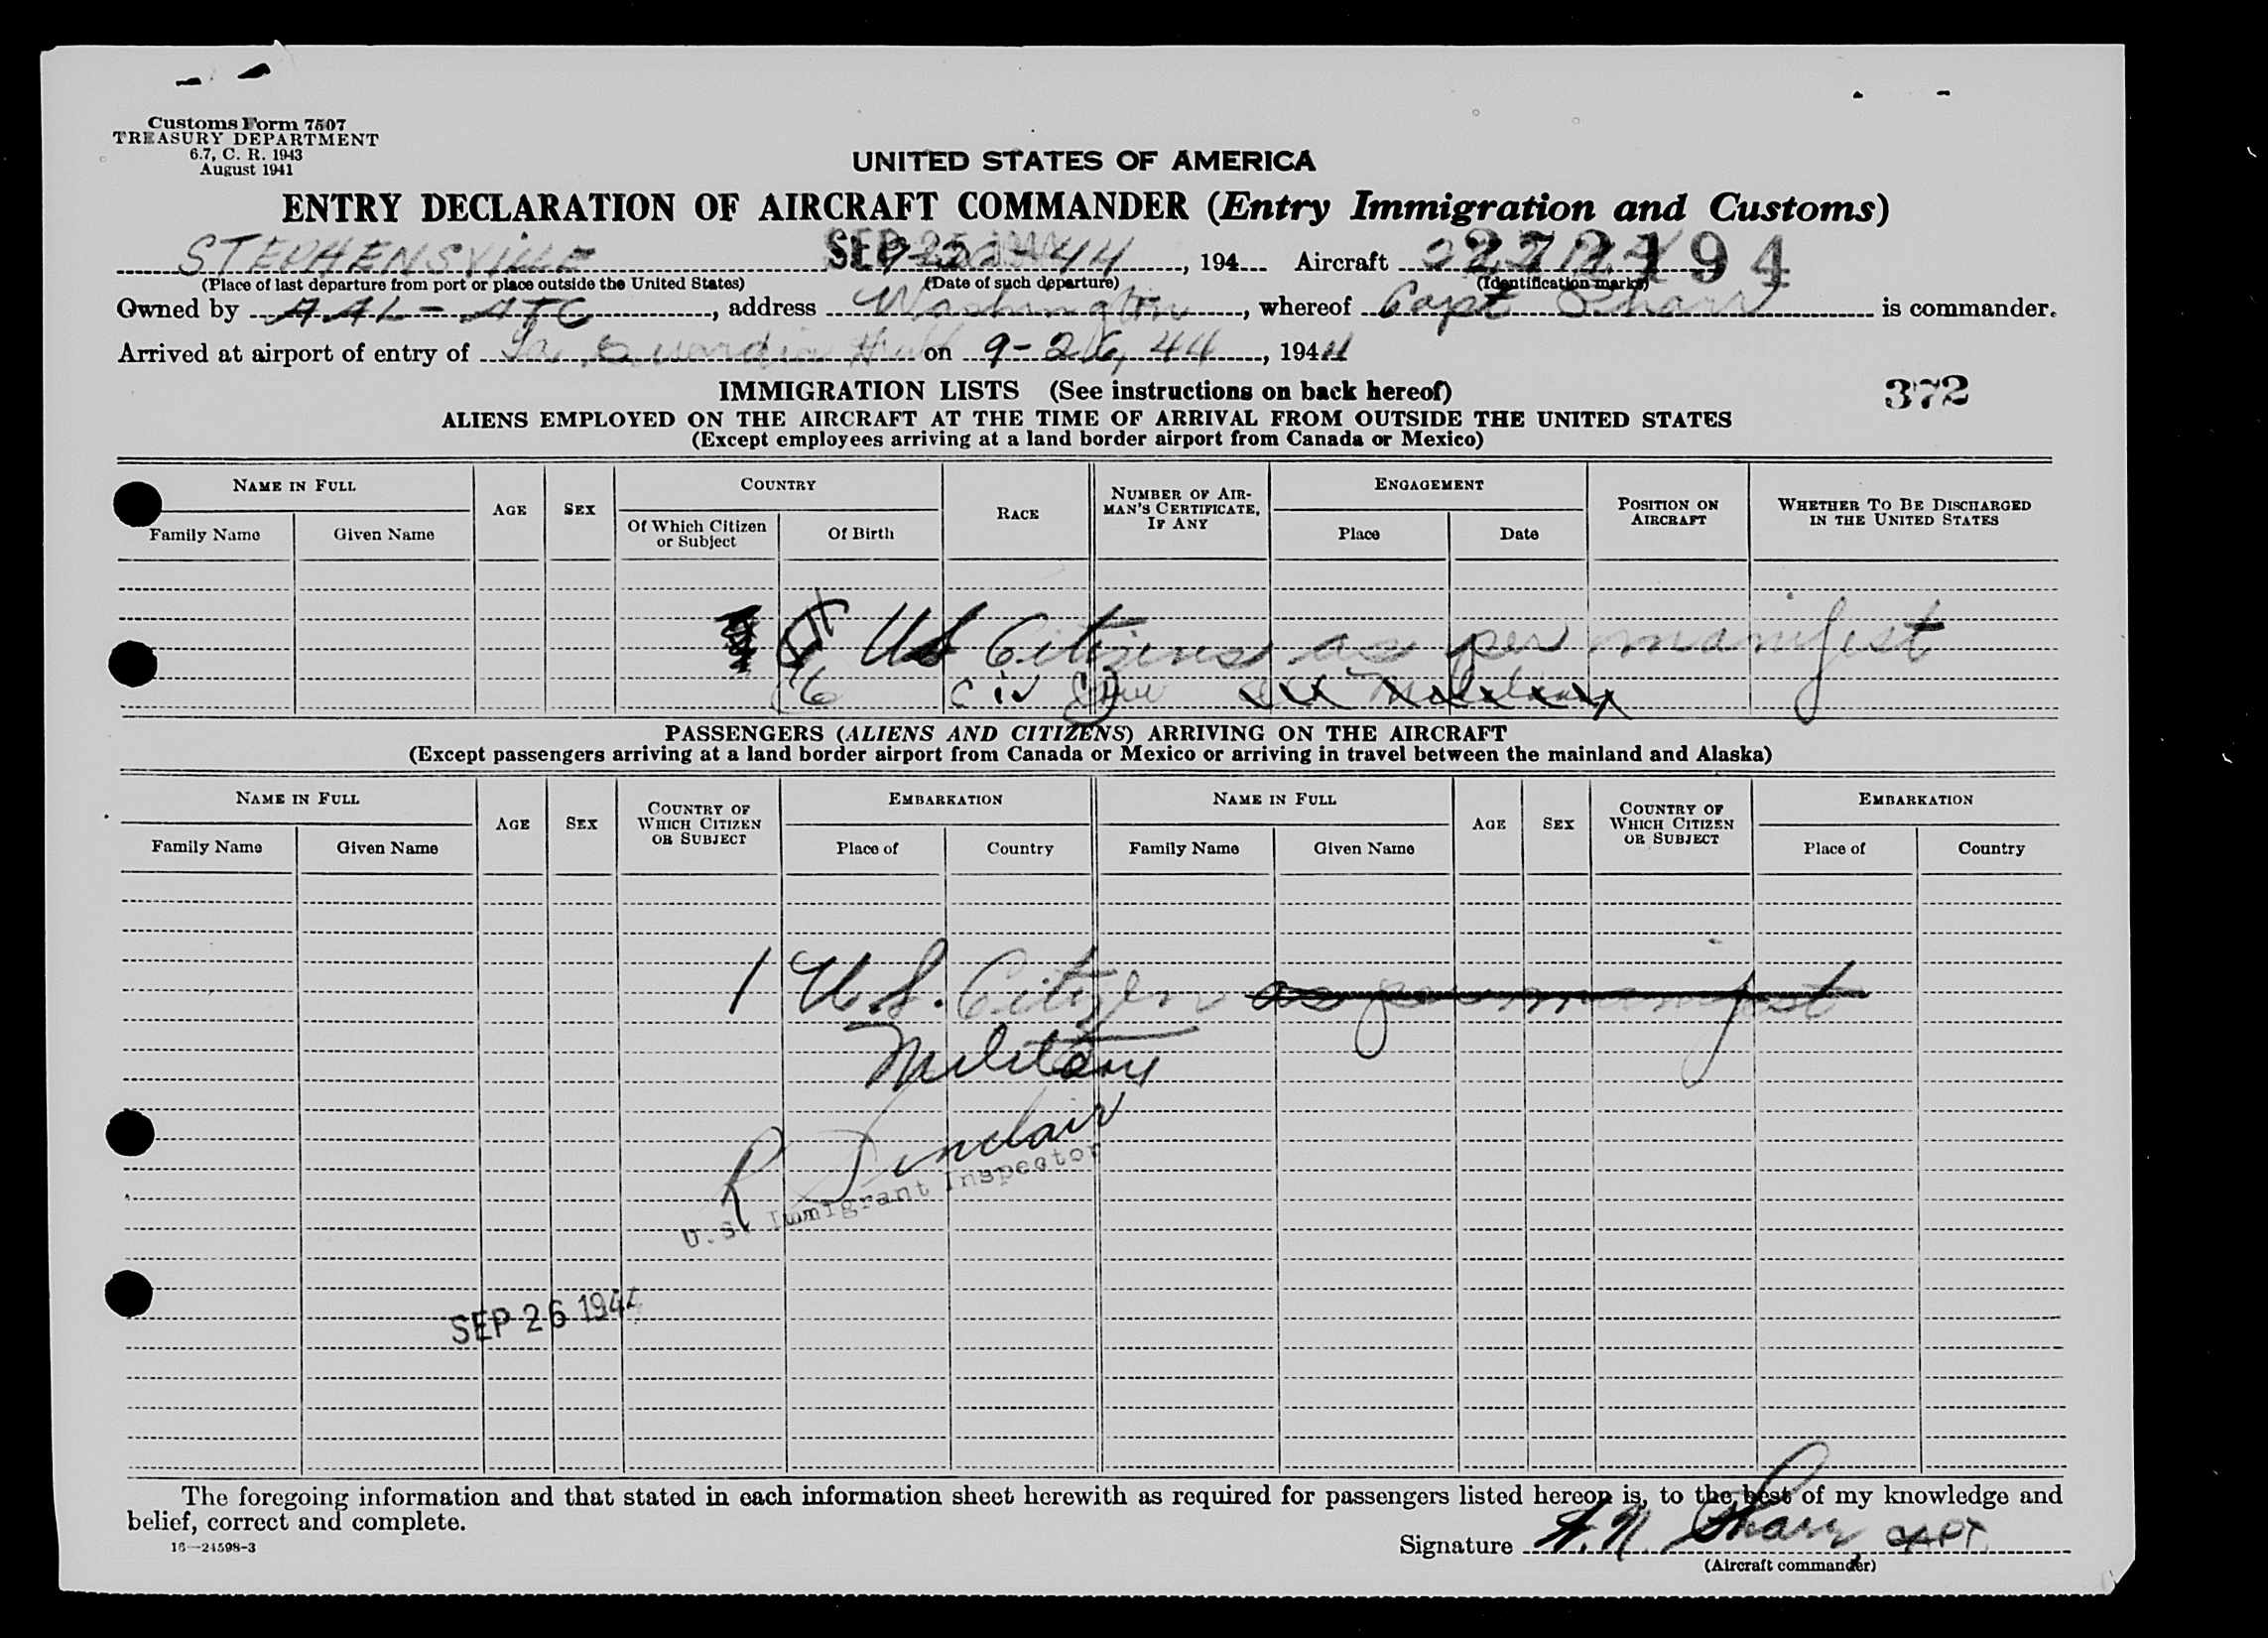 Customs Form 7507
TREASURY DEPARTMENT
6.7, C. R. 1943
August 1941
UNITED STATES OF AMERICA
ENTRY DECLARATION OF AIRCRAFT COMMANDER (Entry Immigration and Customs)
STEPHENSVILLE , 194 Aircraft 272194
(Place of last departure from port or place outside the United States) (Date of such departure) (Identification marks)
Owned by AAL - ATC, address Washington, whereof Capt Pharr is commander.
Arrived at airport of entry of La Guardia on 9-26, 44, 1944
IMMIGRATION LISTS (See instructions on back hereof)
372
ALIENS EMPLOYED ON THE AIRCRAFT AT THE TIME OF ARRIVAL FROM OUTSIDE THE UNITED STATES
(Except employees arriving at a land border airport from Canada or Mexico)
NAME IN FULL AGE SEX COUNTRY RACE NUMBER OF AIRMAN'S CERTIFICATE, IF ANY ENGAGEMENT POSITION ON AIRCRAFT WHETHER TO BE DISCHARGED IN THE UNITED STATES
Family Name Given Name Of Which Citizen or Subject Of Birth Place Date
US Citizens as per manifest
6 Civ Crew
PASSENGERS (ALIENS AND CITIZENS) ARRIVING ON THE AIRCRAFT
(Except passengers arriving at a land border airport from Canada or Mexico or arriving in travel between the mainland and Alaska)
NAME IN FULL AGE SEX COUNTRY OF WHICH CITIZEN OR SUBJECT EMBARKATION NAME IN FULL AGE SEX COUNTRY OF WHICH CITIZEN OR SUBJECT EMBARKATION
Family Name Given Name Place of Country Family Name Given Name Place of Country
1 U.S. Citizen as per manifest
Military
R Sinclair
U.S. Immigrant Inspector
SEP 26 1944
The foregoing information and that stated in each information sheet herewith as required for passengers listed hereon is, to the best of my knowledge and
belief, correct and complete.
16—24598-3
Signature Pharr, CAPT.
(Aircraft commander)